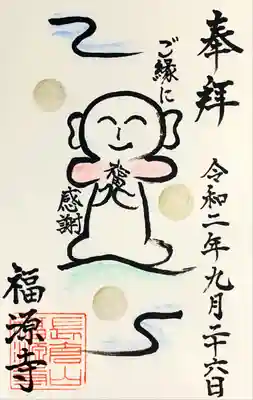 奉拝
令和二年九月二十六日
ご縁に
感謝
福源寺